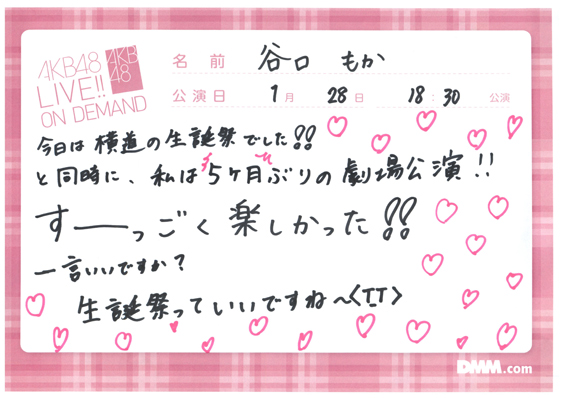 AKB48
LIVE!!
ON DEMAND
AKB
48
名前 谷口 もか
公演日 1月 28日 18:30 公演
今日は横道の生誕祭でした!!
と同時に、私は5ヶ月ぶりの劇場公演!!
すーーっごく楽しかった!!
一言いいですか?
生誕祭っていいですね〜<TT>
DMM.com